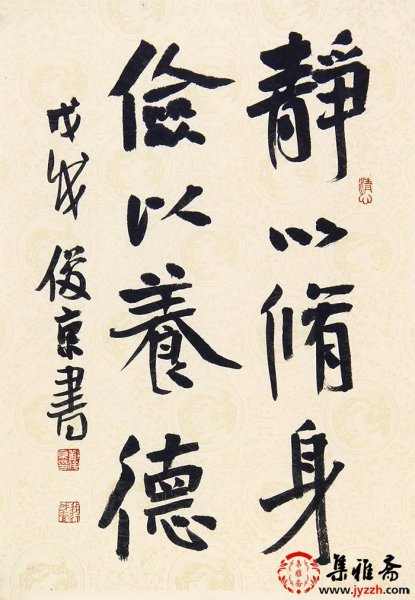 靜以脩身
儉以養德
戊戌 俊京書
清心
集雅斋
www.jyzzh.com